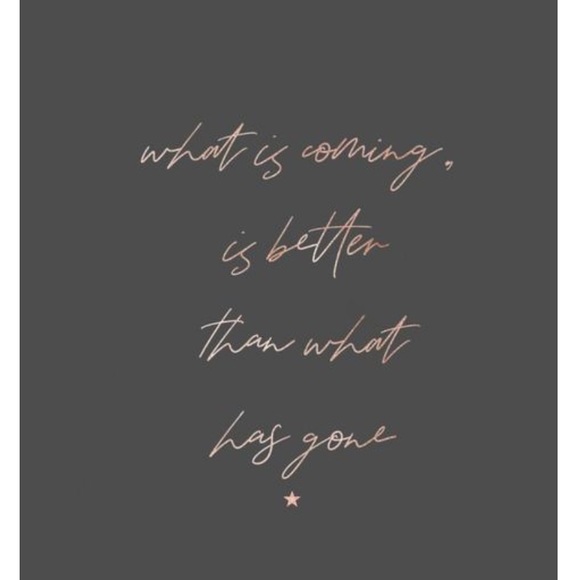 what is coming,
is better
than what
has gone